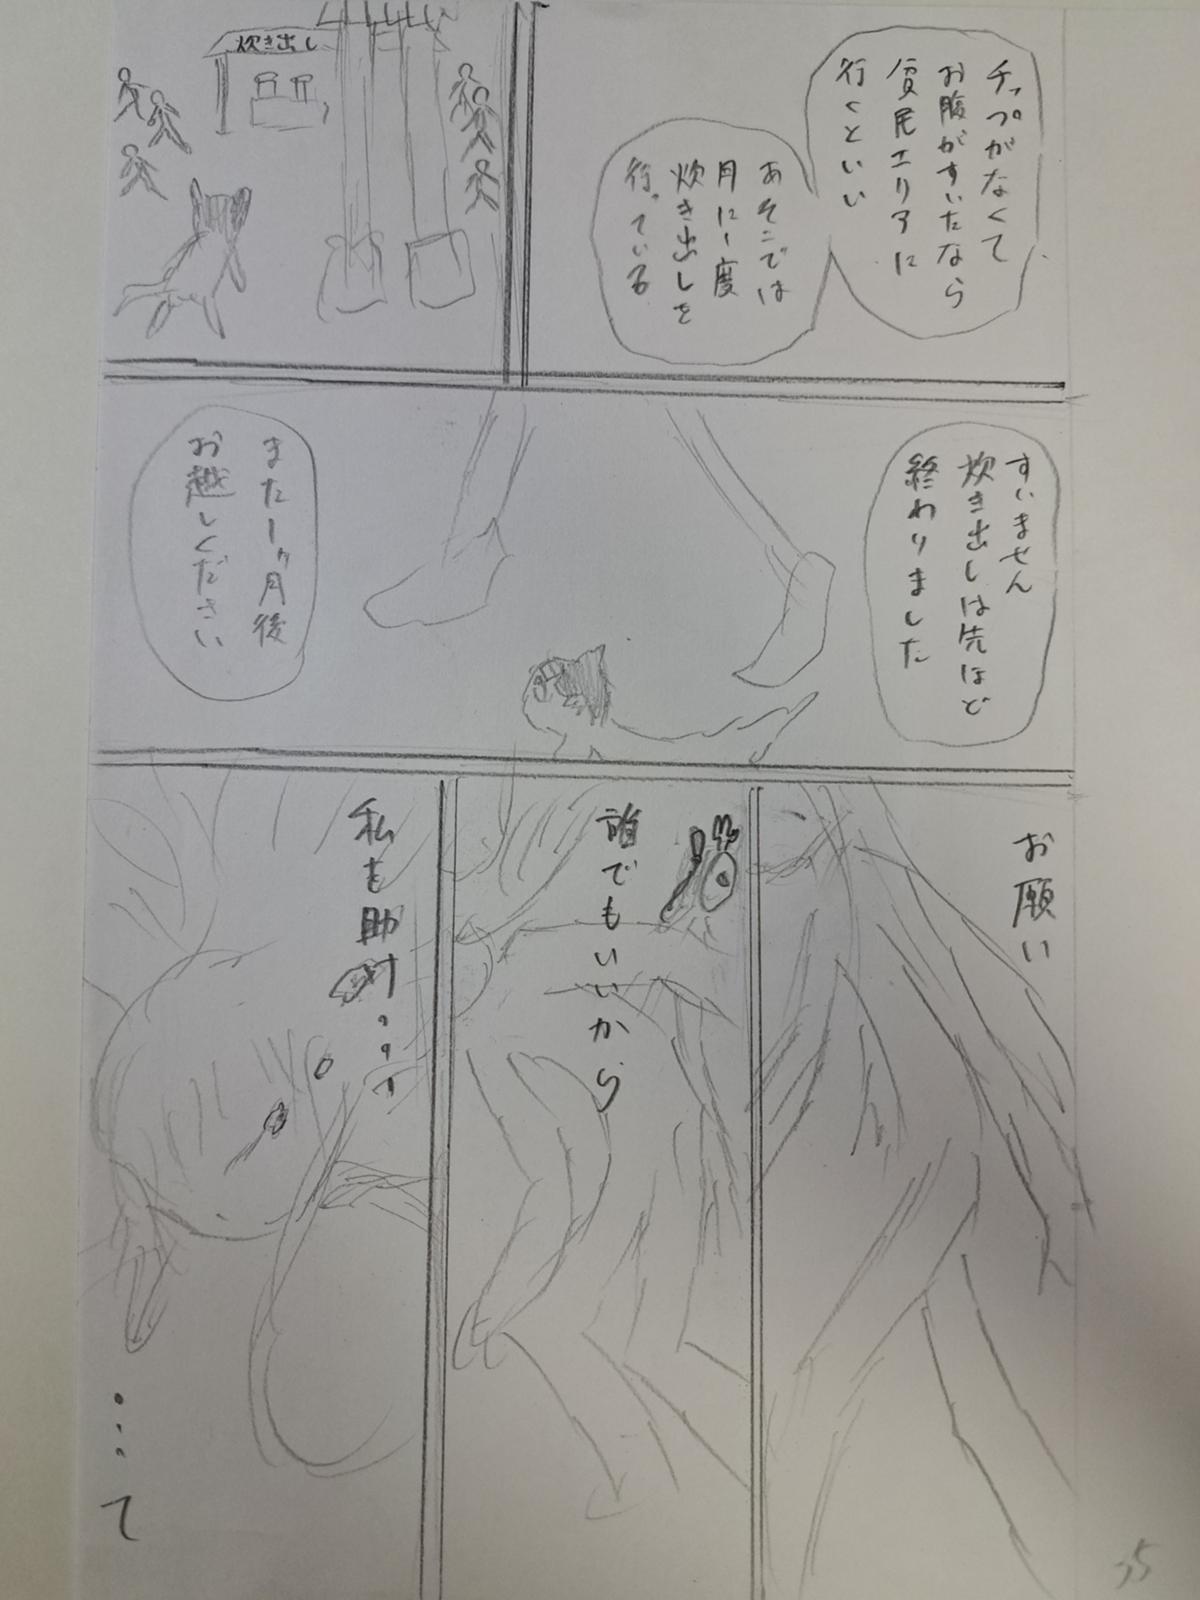 チップがなくて
お腹がすいたなら
貧民エリアに
行くといい
あそこでは
月に1度
炊き出しを
行っている
炊き出し
すいません
炊き出しは先ほど
終わりました
また1ヶ月後
お越しください
お願い
誰でもいいから
私を助け...
...て
35